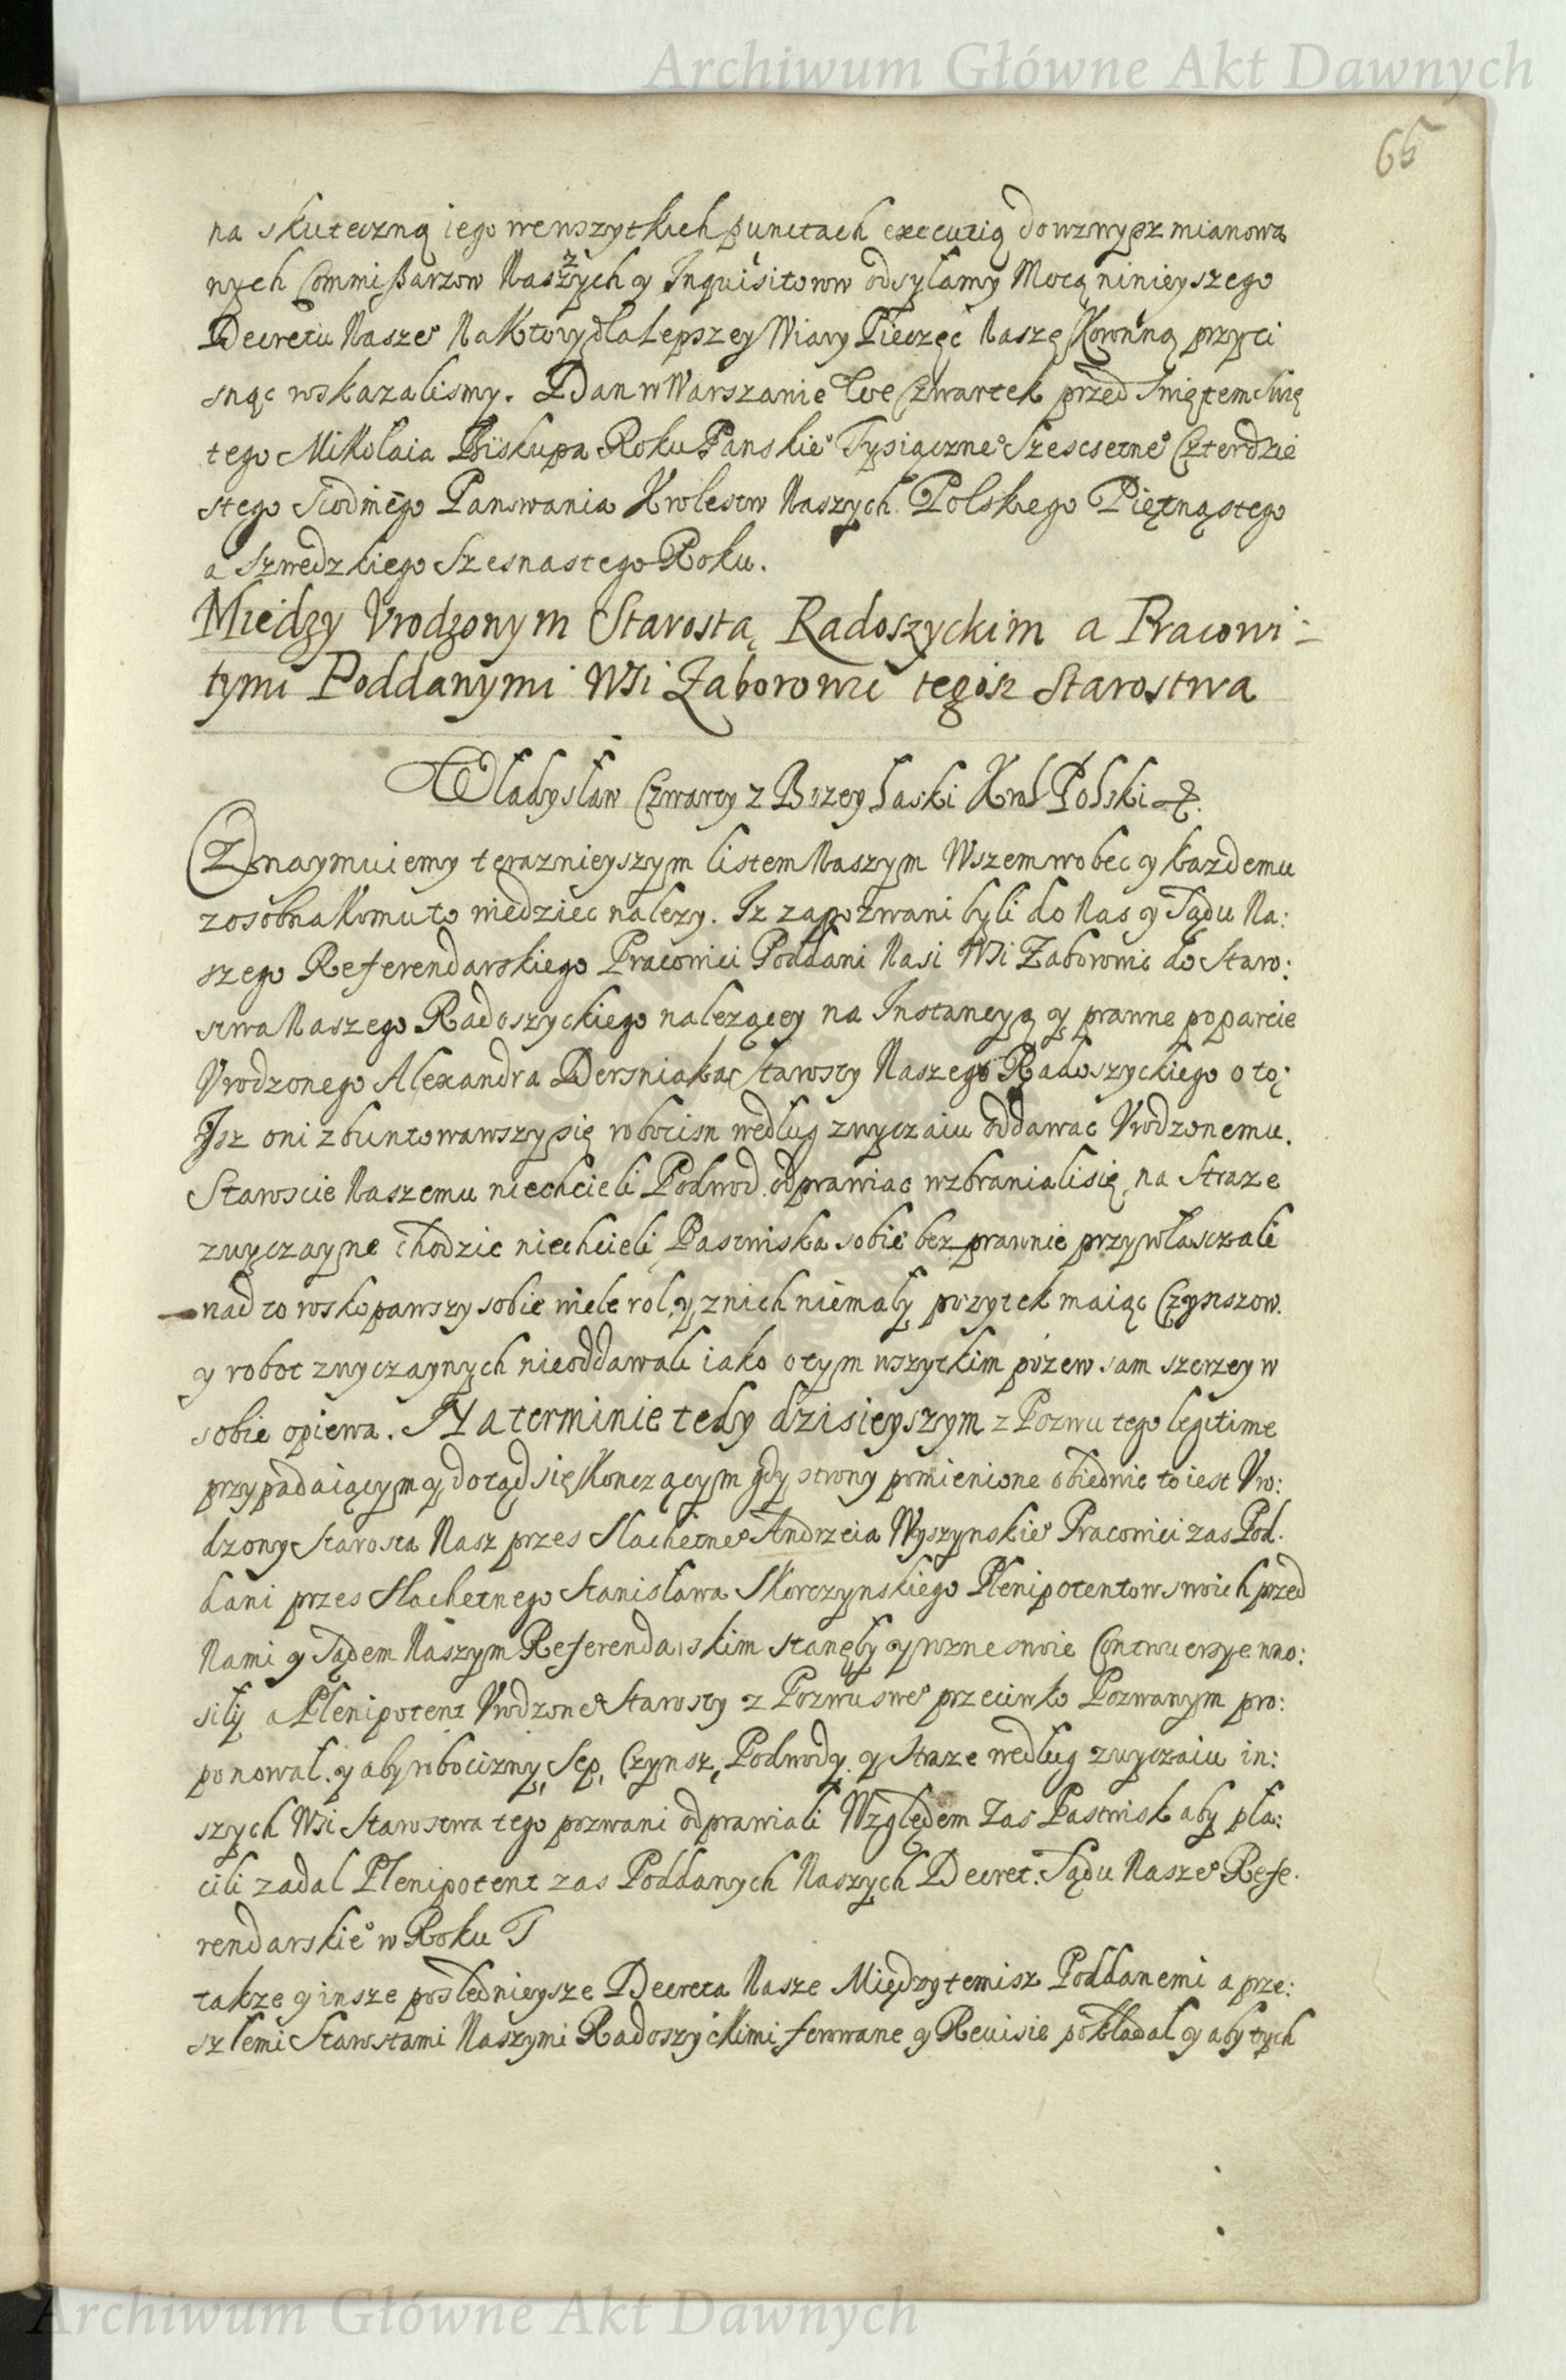 Archiwum Główne Akt Dawnych
65
na skuteczną iego wewszytkich punctach executią dowzwysz mianowa
nych Commißarzow Naszych y Inquisitorow odsyłamy Mocą ninieyszego
Decretu Nasze° Naktory dla Lepszey Wiary Pieczęć Naszę Koronną przyci
snąc wskazalismy. Dan w Warszawie We Czwartek przed Swiętem Swię
tego Mikołaia Biskupa Roku Panskie° Tysiączne° Szescsetne° Czterdzie
stego Siodmego Panowania Krolestw Naszych Polskego Piętnąstego
a Szwedzkiego Szesnastego Roku.
Miedzy Vrodzonym Starostą Radoszyckim a Pracowi-
tymi Poddanymi Wsi Zaborowic tegosz Starostwa
Władysław Czwarty z Bozey Łaski Krol Polski &.
Oznaymuiemy teraznieyszym listem Naszym Wszem wobec y kazdemu
zosobna komu to wiedziec nalezy. Iz zapozwani byli do Nas y Sądu Na:
szego Referendarskiego Pracowici Poddani Nasi Wsi Zaborowic do Staro:
stwa Naszego Radoszyckiego nalezącey na Instancyą y prawne poparcie
Vrodzonego Alexandra Dersniaka Starosty Naszego Radoszyckiego o to
Isz oni zbuntowawszy się robocisn według zwyczaiu oddawac Vrodzonemu
Staroscie Naszemu niechcieli Podwod odprawiac wzbranialisię na Straze
zwyczayne chodzic niechcieli Pastwiska sobie bezprawnie przywłasczali
nadto roskopawszy sobie wiele rol y znich niemały pozytek maiąc Czynszow
y robot zwyczaynych nieoddawali iako otym wszytkim pozew sam szerzey w
sobie opiewa. Na terminie tedy dzisieyszym z Pozwu tego legitime
przypadaiącym y dotąd się konczącym gdy strony pomienione obiedwie to iest Vro:
dzony Starosta Nasz przes Slachetne° Andrzeia Wyszynskie° Pracowici zas Pod.
dani przes Slachetnego Stanisława Skorczynskiego Plenipotentow swoich przed
Nami y Sądem Naszym Referendarskim stanęły y rozne swoie Controuersye wno:
siły a Plenipotent Vrodzone° Starosty z Pozwu swe° przeciwko Pozwanym pro:
ponował. y aby robocizny, Sep, Czynsz, Podwody y Straze według zwyczaiu in:
szych Wsi Starostwa tego pozwani odprawiali Względem Zas Pastwisk aby pła:
cili zadal Plenipotent zas Poddanych Naszych Decret Sądu Nasze° Refe.
rendarskie° w Roku T
takze y insze poslednieysze Decreta Nasze Między temisz Poddanemi a prze:
szłemi Starostami Naszymi Radoszyckimi ferowane y Reuisie pokładał y aby tych
Archiwum Główne Akt Dawnych